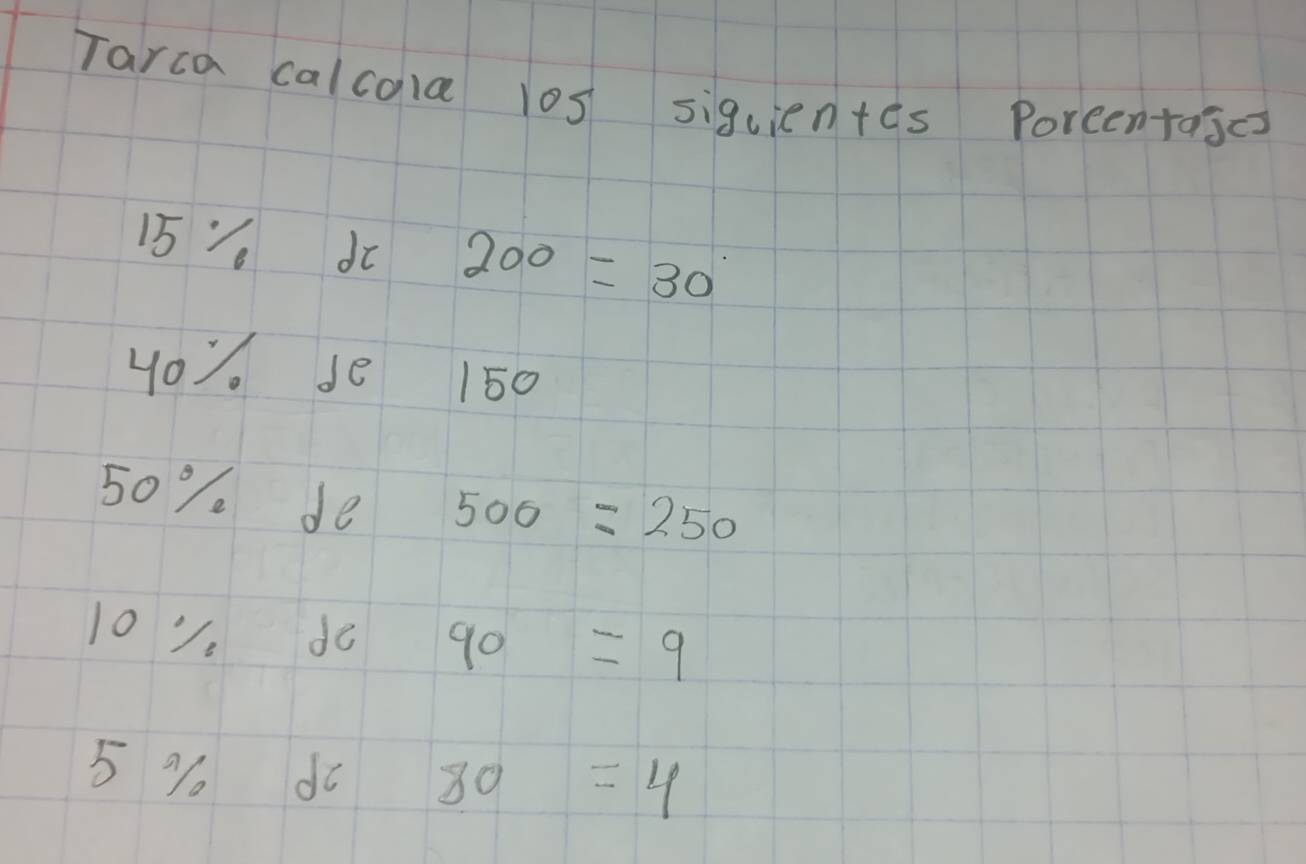 Tarea calcula los siguientes Porcentajes
15% de 200 = 30
40% de 150
50% de 500 = 250
10% de 90 = 9
5% de 80 = 4